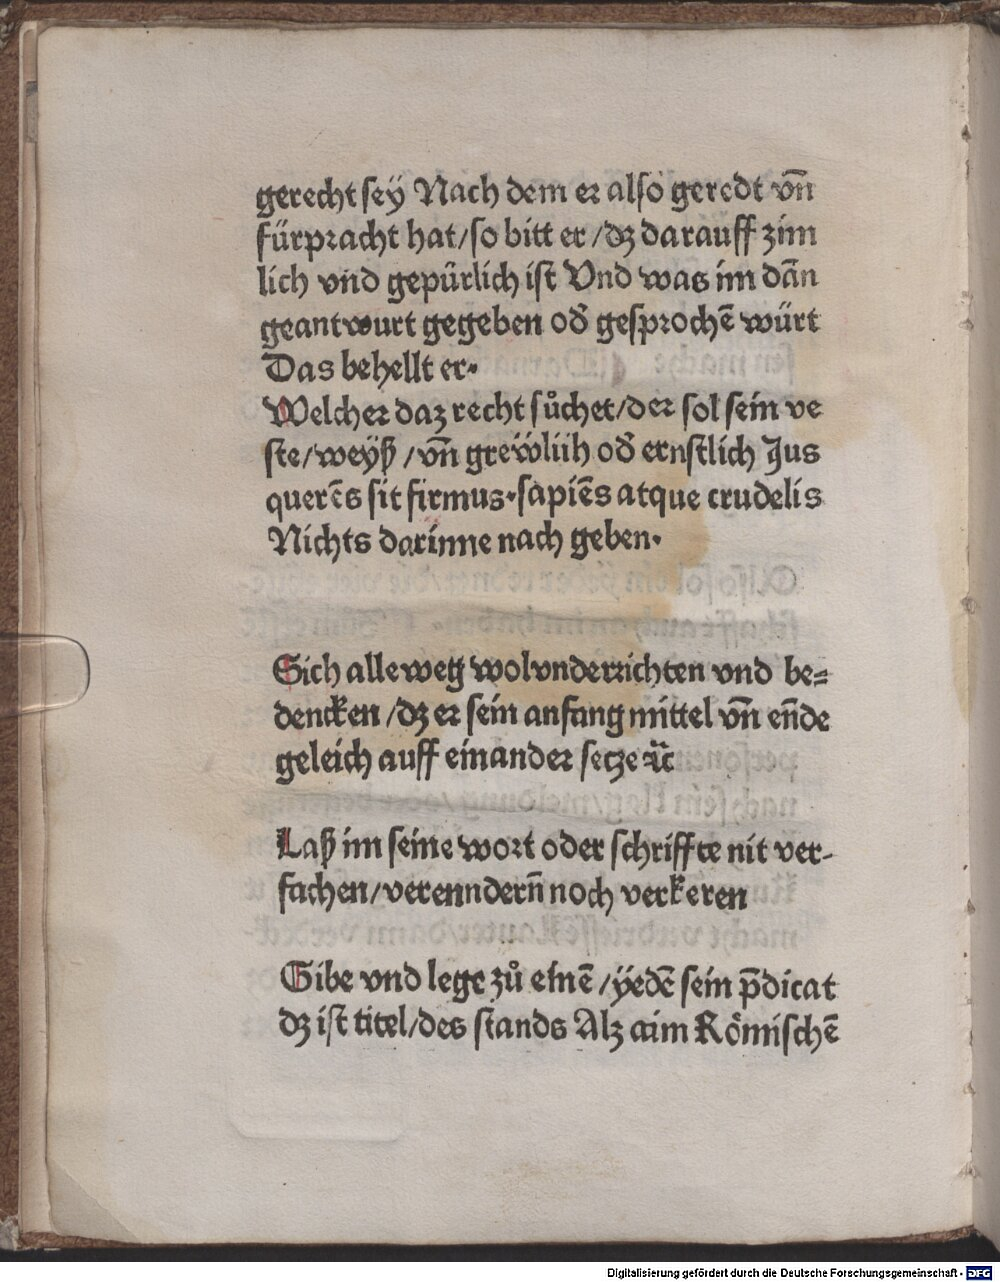 gerecht sey̋ Nach dem er also geredt vn̄
fürpracht hat/so bitt er/dz darauff zim
lich vnd gepürlich ist Vnd was im dān
geantwurt gegeben od̕ gesprochē würt
Das behellt er.
Welcher daz recht sůchet/der sol sein ve
ste/wey̋ß/vn̄ grewlich od̕ ernstlich Jus
querēs sit firmus.sapiēs atque crudelis
Nichts darinne nach geben.
Sich alleweg wolvnderrichten vnd be=
dencken/dz er sein anfang mittel vn̄ en̄de
geleich auff einander setze ꝛc̄
Laß im seine wort oder schriffte nit ver-
fachen/verenndern̄ noch verkeren
Gibe vnd lege zů einē/y̋edē sein p̄dicat
dz ist titel/des stands Alz aim Römischē
Digitalisierung gefördert durch die Deutsche Forschungsgemeinschaft - DFG